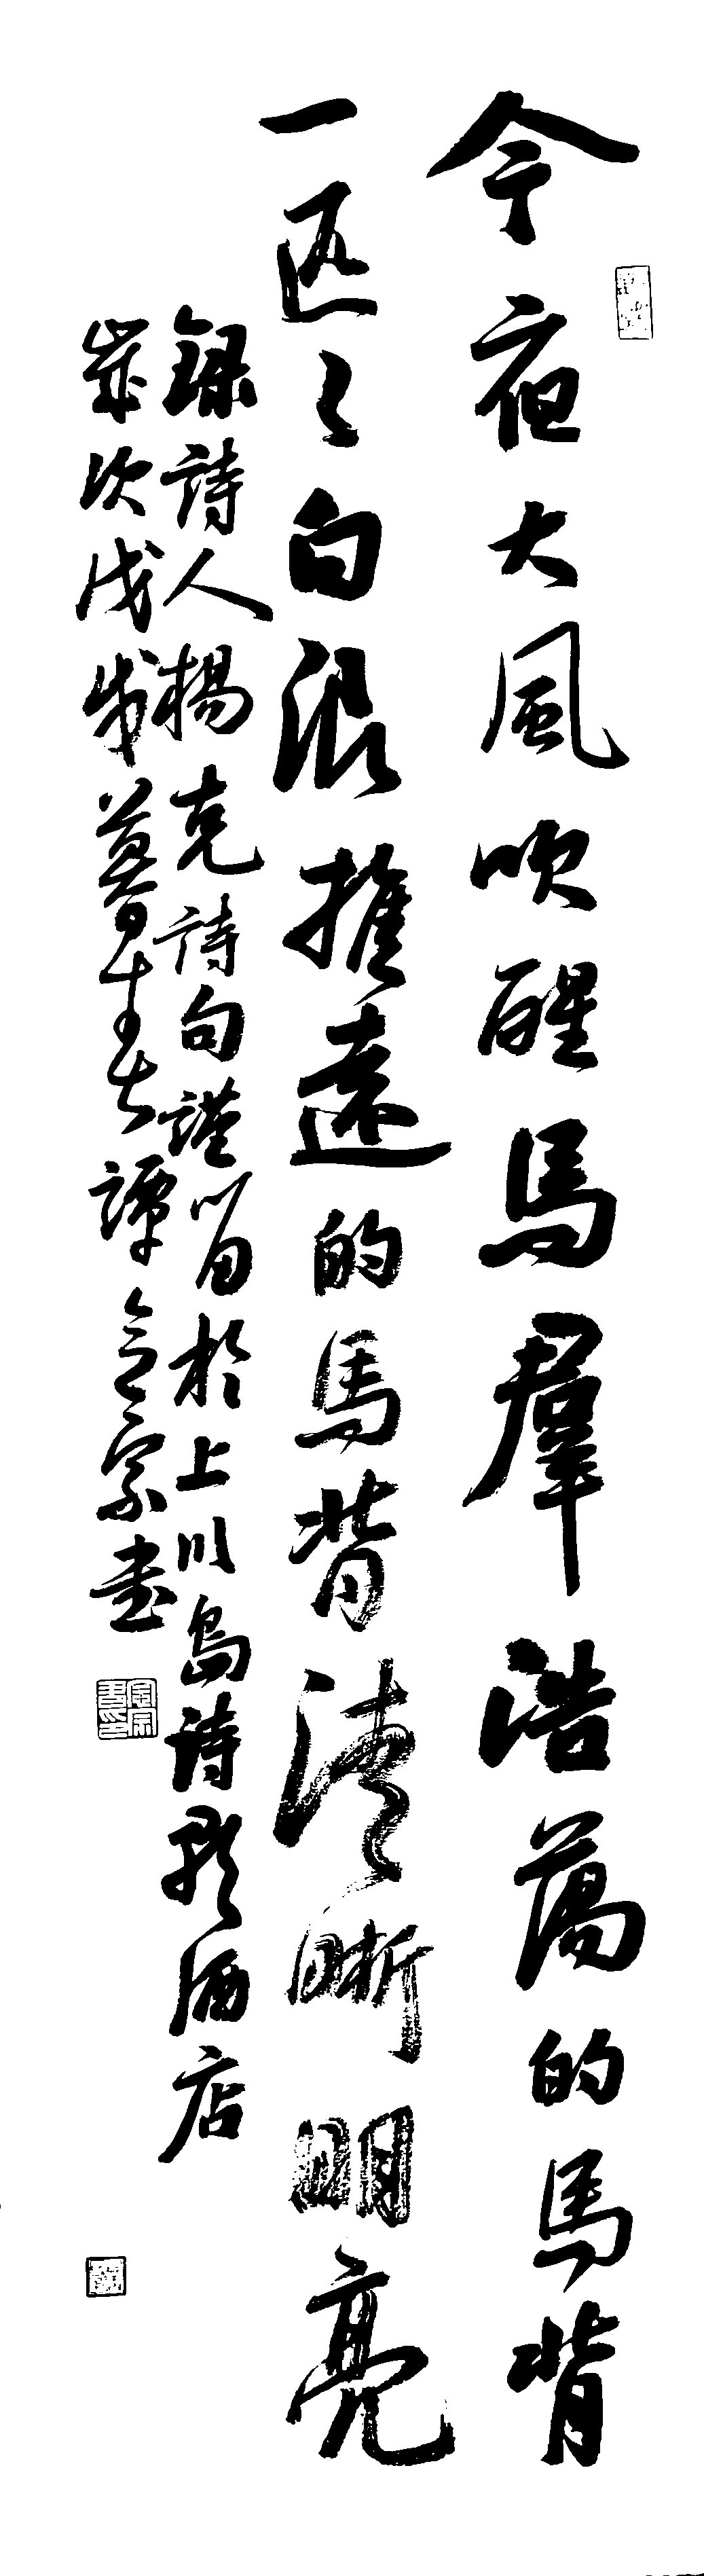 今夜大風吹醒馬羣浩蕩的馬背
一匹々白浪推遠的馬背清晰明亮
録詩人楊克詩句謹留於上川島詩歌酒店
歲次戊戌暮春譚宗書